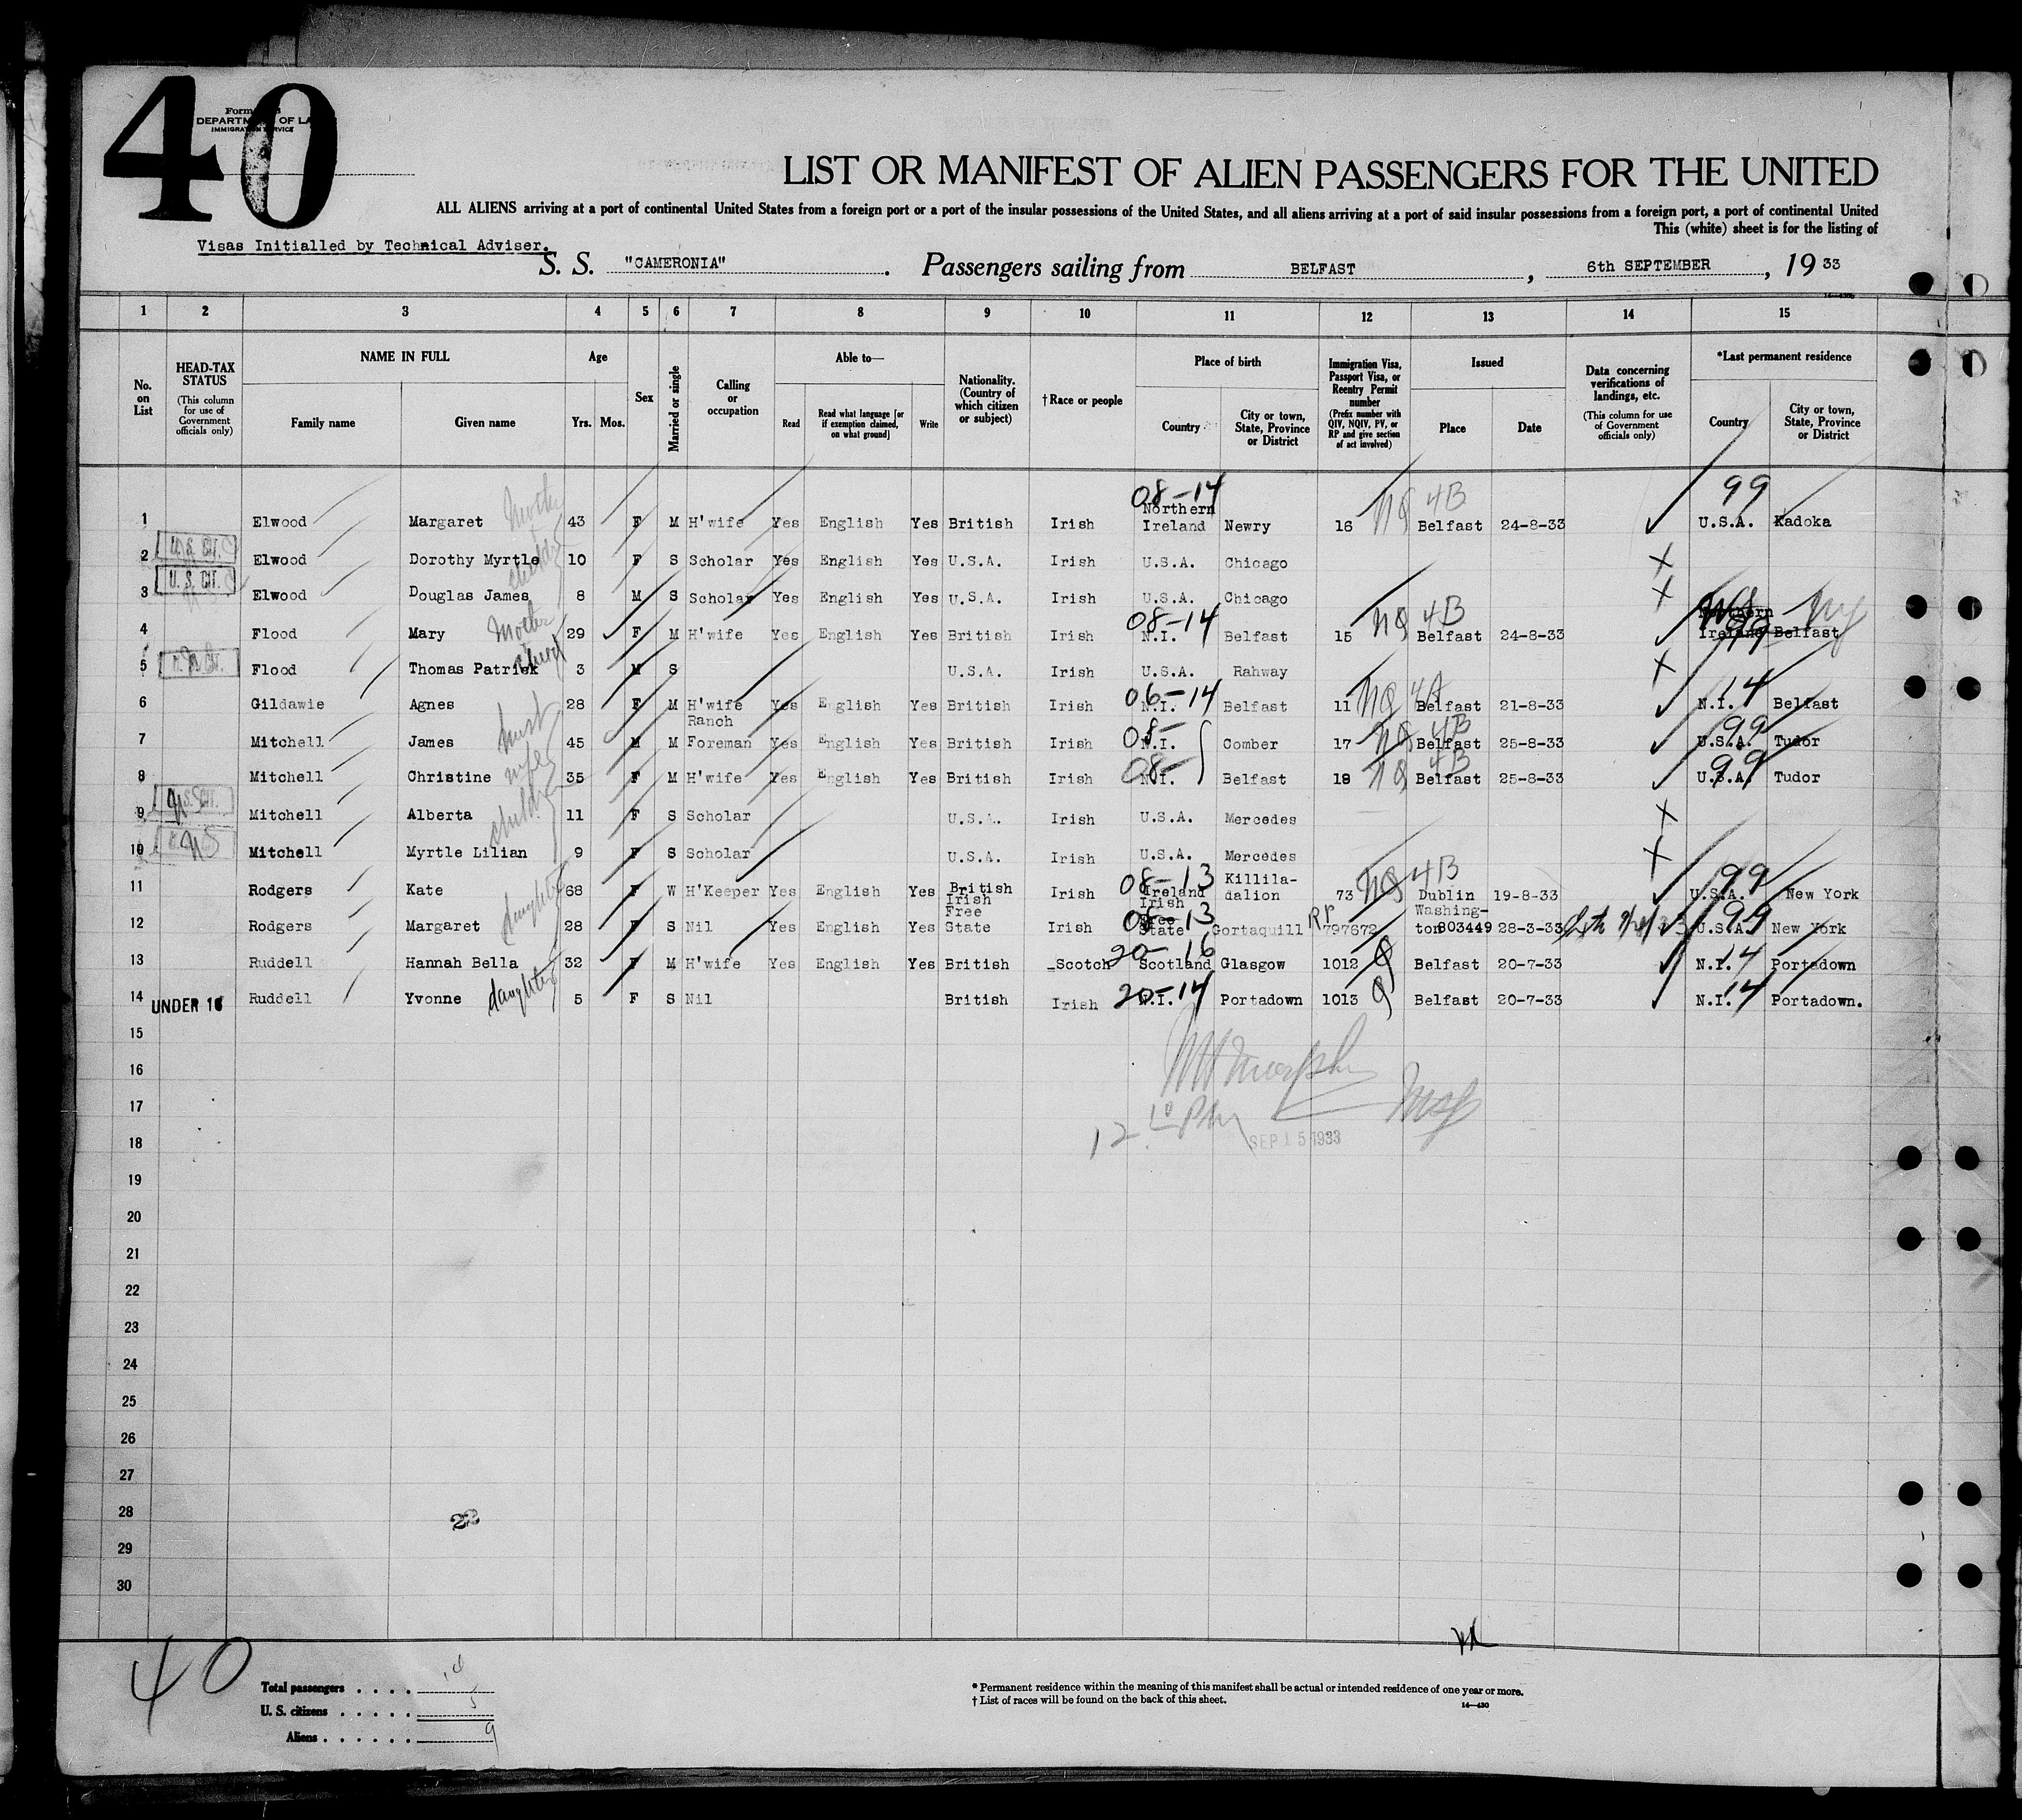 40
Form
DEPARTM OF LA
IMMIGRATION SERVICE
LIST OR MANIFEST OF ALIEN PASSENGERS FOR THE UNITED
ALL ALIENS arriving at a port of continental United States from a foreign port or a port of the insular possessions of the United States, and all aliens arriving at a port of said insular possessions from a foreign port, a port of continental United
This (white) sheet is for the listing of
Visas Initialled by Technical Adviser.
S. S. "CAMERONIA". Passengers sailing from BELFAST, 6th SEPTEMBER, 19 33
1 2 3 4 5 6 7 8 9 10 11 12 13 14 15
No. on List
HEAD-TAX STATUS (This column for use of Government officials only)
NAME IN FULL Family name Given name
Age Yrs. Mos.
Sex
Married or single
Calling or occupation
Able to— Read Read what language [or if exemption claimed, on what ground] Write
Nationality. (Country of which citizen or subject)
†Race or people
Place of birth Country City or town, State, Province or District
Immigration Visa, Passport Visa, or Reentry Permit number (Prefix number with QIV, NQIV, PV, or RP and give section of act involved)
Issued Place Date
Data concerning verifications of landings, etc. (This column for use of Government officials only)
*Last permanent residence Country City or town, State, Province or District
1 Elwood Margaret Mother 43 F M H'wife Yes English Yes British Irish 08-14 Northern Ireland Newry 16 NQ 4B Belfast 24-8-33 99 U.S.A. Kadoka
2 U.S. CIT. Elwood Dorothy Myrtle 10 F S Scholar Yes English Yes U.S.A. Irish U.S.A. Chicago X
3 U.S. CIT. Elwood Douglas James 8 M S Scholar Yes English Yes U.S.A. Irish U.S.A. Chicago X
4 Flood Mary Mother 29 F M H'wife Yes English Yes British Irish 08-14 N.I. Belfast 15 NQ 4B Belfast 24-8-33 Northern Ireland 99 Belfast NY
5 Flood Thomas Patrick 3 M S U.S.A. Irish U.S.A. Rahway X
6 Gildawie Agnes 28 F M H'wife Yes English Yes British Irish 06-14 N.I. Belfast 11 NQ 4A Belfast 21-8-33 14 N.I. Belfast
7 Mitchell James husb 45 M M Ranch Foreman Yes English Yes British Irish 08- N.I. Comber 17 NQ 4B Belfast 25-8-33 99 U.S.A. Tudor
8 Mitchell Christine wife 35 F M H'wife Yes English Yes British Irish 08- N.I. Belfast 18 NQ 4B Belfast 25-8-33 99 U.S.A. Tudor
9 Mitchell Alberta 11 F S Scholar U.S.A. Irish U.S.A. Mercedes X
10 Mitchell Myrtle Lilian 9 F S Scholar U.S.A. Irish U.S.A. Mercedes X
11 Rodgers Kate 68 F W H'Keeper Yes English Yes British Irish 08-13 Ireland Killila-dalion 73 NQ 4B Dublin 19-8-33 99 U.S.A. New York
12 Rodgers Margaret daughter 28 F S Nil Yes English Yes Irish Free State Irish 08-13 Irish Free State Gortaquill RP 797672 Washing-ton 803449 28-3-33 99 U.S.A. New York
13 Ruddell Hannah Bella 32 F M H'wife Yes English Yes British Scotch 20-16 Scotland Glasgow 1012 Q Belfast 20-7-33 14 N.I. Portadown
14 UNDER 16 Ruddell Yvonne daughter 5 F S Nil British Irish 20-14 N.I. Portadown 1013 Q Belfast 20-7-33 14 N.I. Portadown.
15
16
17
18
SEP 15 1933
19
20
21
22
23
24
25
26
27
28
29
30
40
Total passengers . . . . 14
U. S. citizens . . . . . 5
Aliens . . . . . . 9
* Permanent residence within the meaning of this manifest shall be actual or intended residence of one year or more.
† List of races will be found on the back of this sheet.
14—430